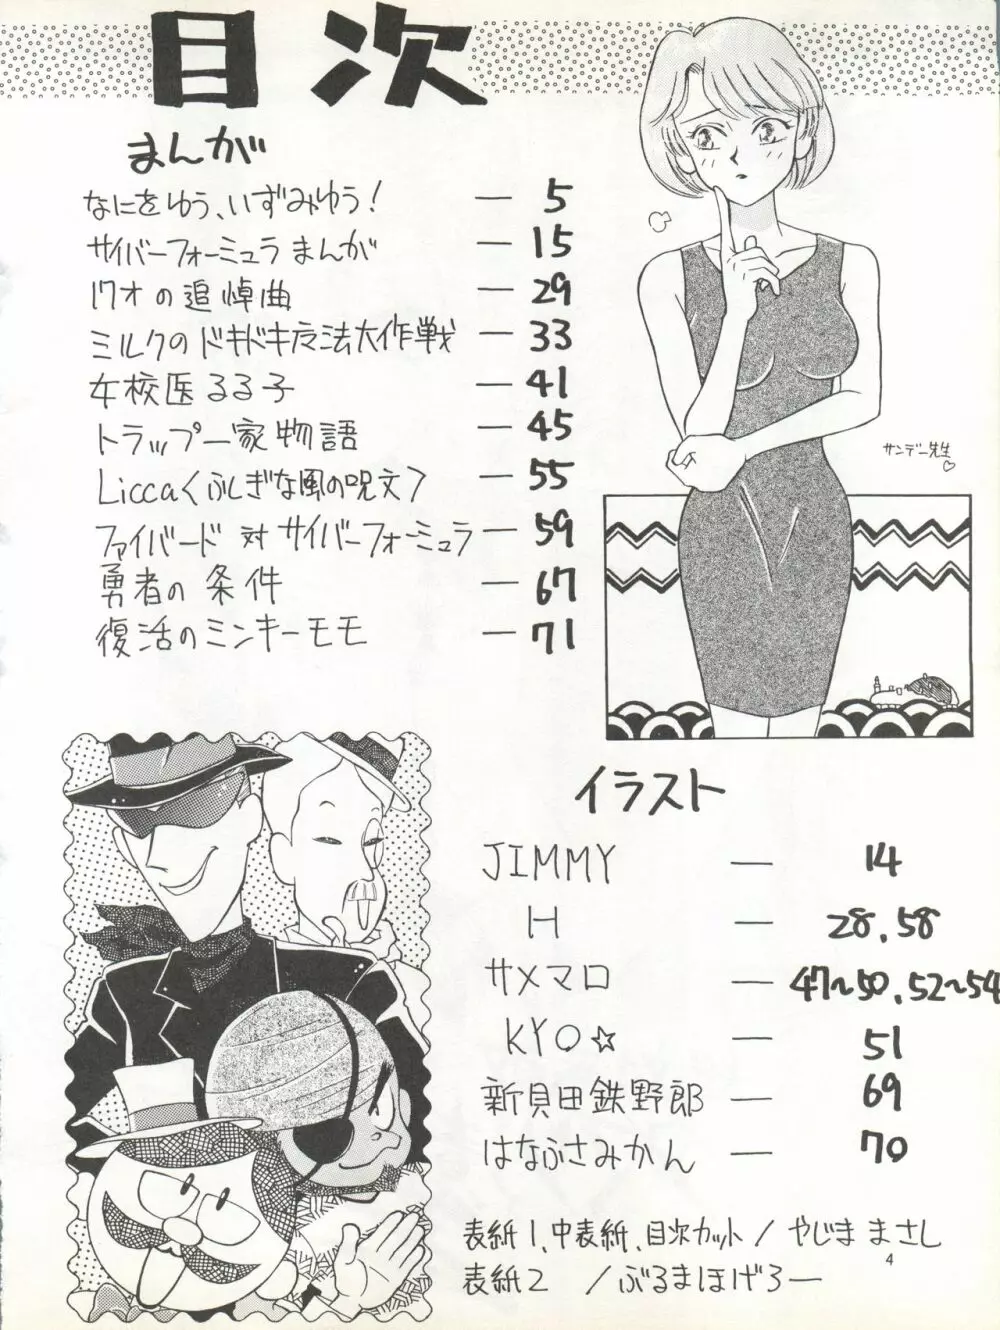 目次
まんが
なにをゆう、いずみゆう! — 5
サイバーフォーミュラ まんが — 15
17才の追悼曲 — 29
ミルクのドキドキ魔法大作戦 — 33
女校医るる子 — 41
トラップ一家物語 — 45
Licca〈ふしぎな風の呪文〉 — 55
ファイバード 対 サイバーフォーミュラ — 59
勇者の条件 — 67
復活のミンキーモモ — 71
サンデー先生♡
イラスト
JIMMY — 14
H — 28、58
サメマロ — 47〜50、52〜54
KYO☆ — 51
新貝田鉄野郎 — 69
はなふさみかん — 70
表紙1、中表紙、目次カット/やじま まさし
表紙2 /ぶるまほげろー
4